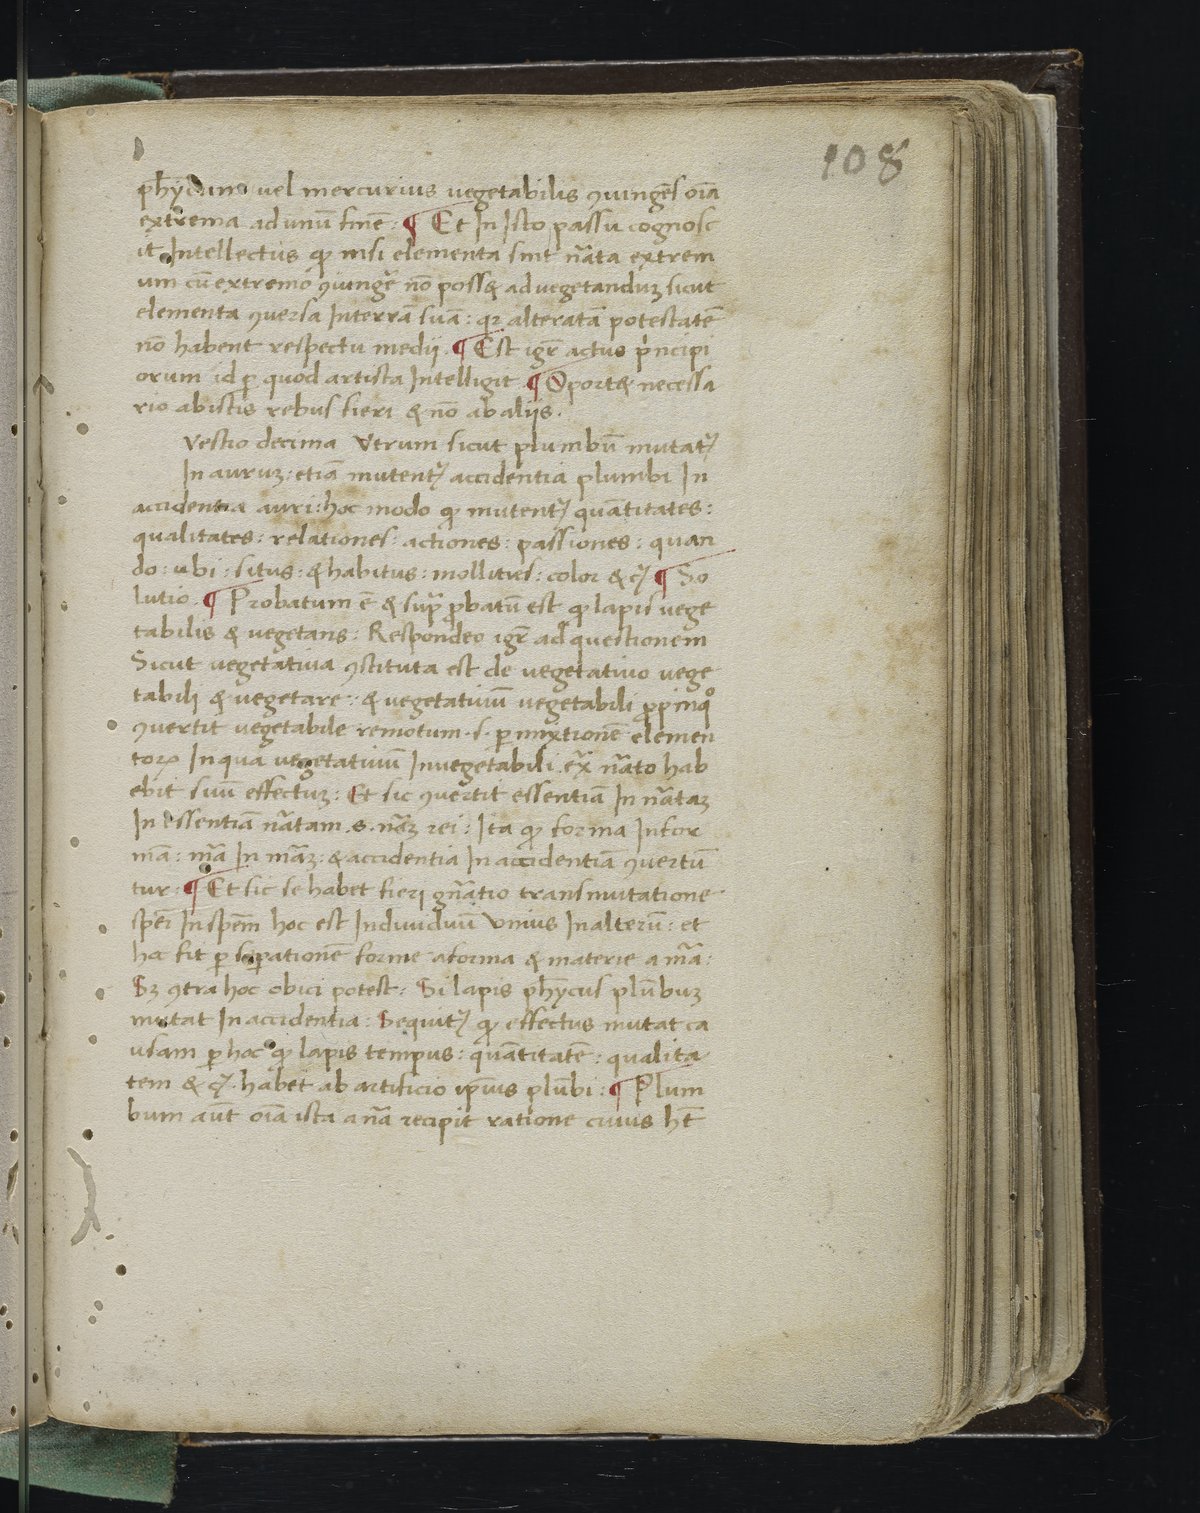 108
phycum vel mercurius vegetabilis ꝯiungēs oīa
extrema ad unū finē : ¶ Et In Isto passu cognosc
it Intellectus ꝙ nisi elementa sint nāta extrem
um cū extremo ꝯiungẽ nō possꝫ ad vegetanduꝫ sicut
elementa ꝯuersa Interrā suā : qꝛ alteratā potestatē
nō habent respectu medii . ¶ Est igr̄ actus pͥncipi
orum id ꝑ quod artista Intelligit ¶ Oport& necessa
rio abistis rebus fieri & nō abaliis .
vestio decima Vtrum sicut plumbū mutatᷣ
In auruꝫ : etiā mutentᷣ accidentia plumbi In
accidentia auri : hoc modo ꝙ mutentᷣ quātitates :
qualitates : relationes : actiones : passiones : quan
do : ubi : situs : & habitus : mollities : color & cᷣ ¶ So
lutio . ¶ Probatum ē & supᷓ ꝓbatū est ꝙ lapis vege
tabilis & vegetans : Respondeo igr̄ ad questionem
Sicut vegetatiua ꝯstituta est de vegetatiuo vege
tabili & vegetare : & vegetatiuū vegetabili ꝓpinqͦ
ꝯuertit vegetabile remotum · s · ꝑ mixtionē elemen
toꝝ In qua vegetatiuū Inuegetabili . ex̄ nāto hab
ebit suū effectuꝫ : Et sic ꝯuertit essentiā In nātaꝫ
In essentiā nātam . s . nāꝫ rei : Ita ꝙ forma Infor
mā : mā In māꝫ : & accidentia In accidentiā ꝯuertū
tur : ¶ Et sic se habet fieri gn̄atio transmutatione
spēi In spēm hoc est Indiuiduū Vnius In alterū : et
hoc fit ꝑ seꝑationē forme aforma & materie a mā :
Sꝫ ꝯtra hoc obici potest : Si lapis phȳcus plūbuꝫ
mutat In accidentia : Sequitᷣ ꝙ effectus mutat ca
usam ꝑ hoc ꝙ lapis tempus : quātitatē : qualita
tem & cᷣ . habet ab artificio ipīus plūbi : ¶ Plum
bum aūt oīa ista a nā recipit ratione cuius hēt